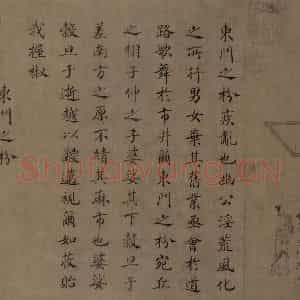 東門之枌疾亂也幽公淫荒風化
之所行男女棄其舊業亟會於道
路歌舞於市井爾東門之枌宛丘
之栩子仲之子婆娑其下穀旦于
差南方之原不績其麻市也婆娑
穀旦于逝越以鬷邁視爾如荍貽
我握椒
東門之枌
Shufawang.CN